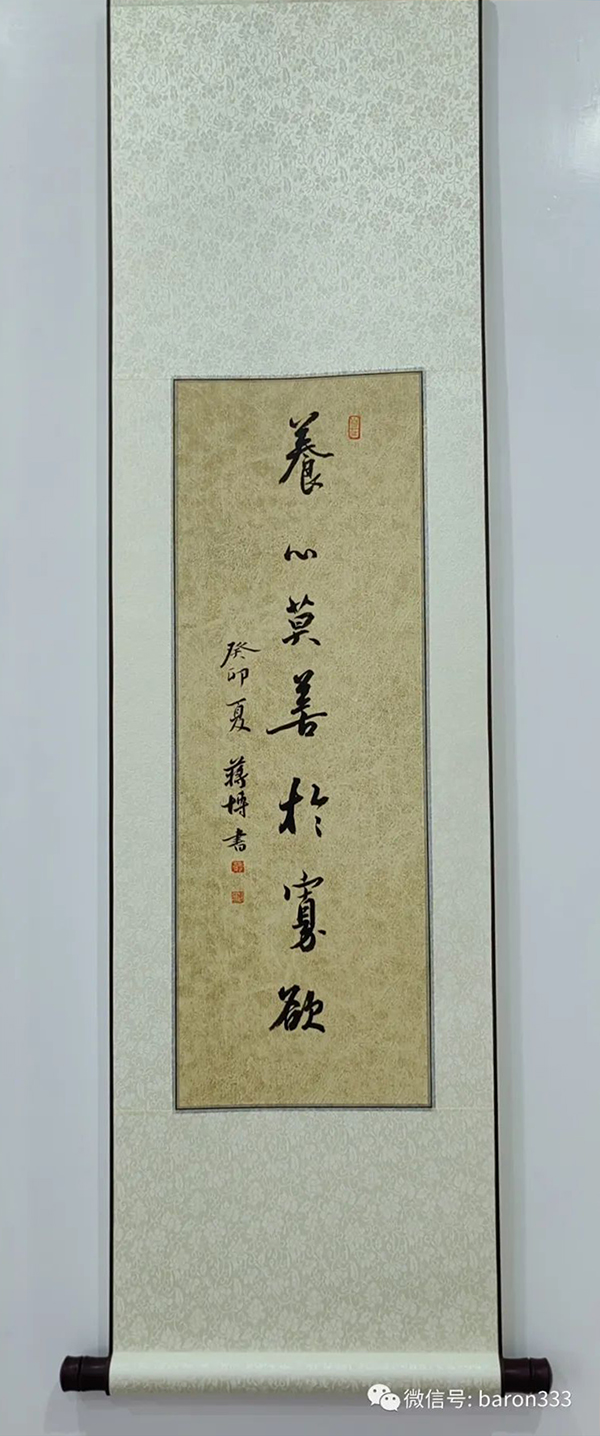 養心莫善於寡欲
癸卯夏蔣博書
微信号: baron333